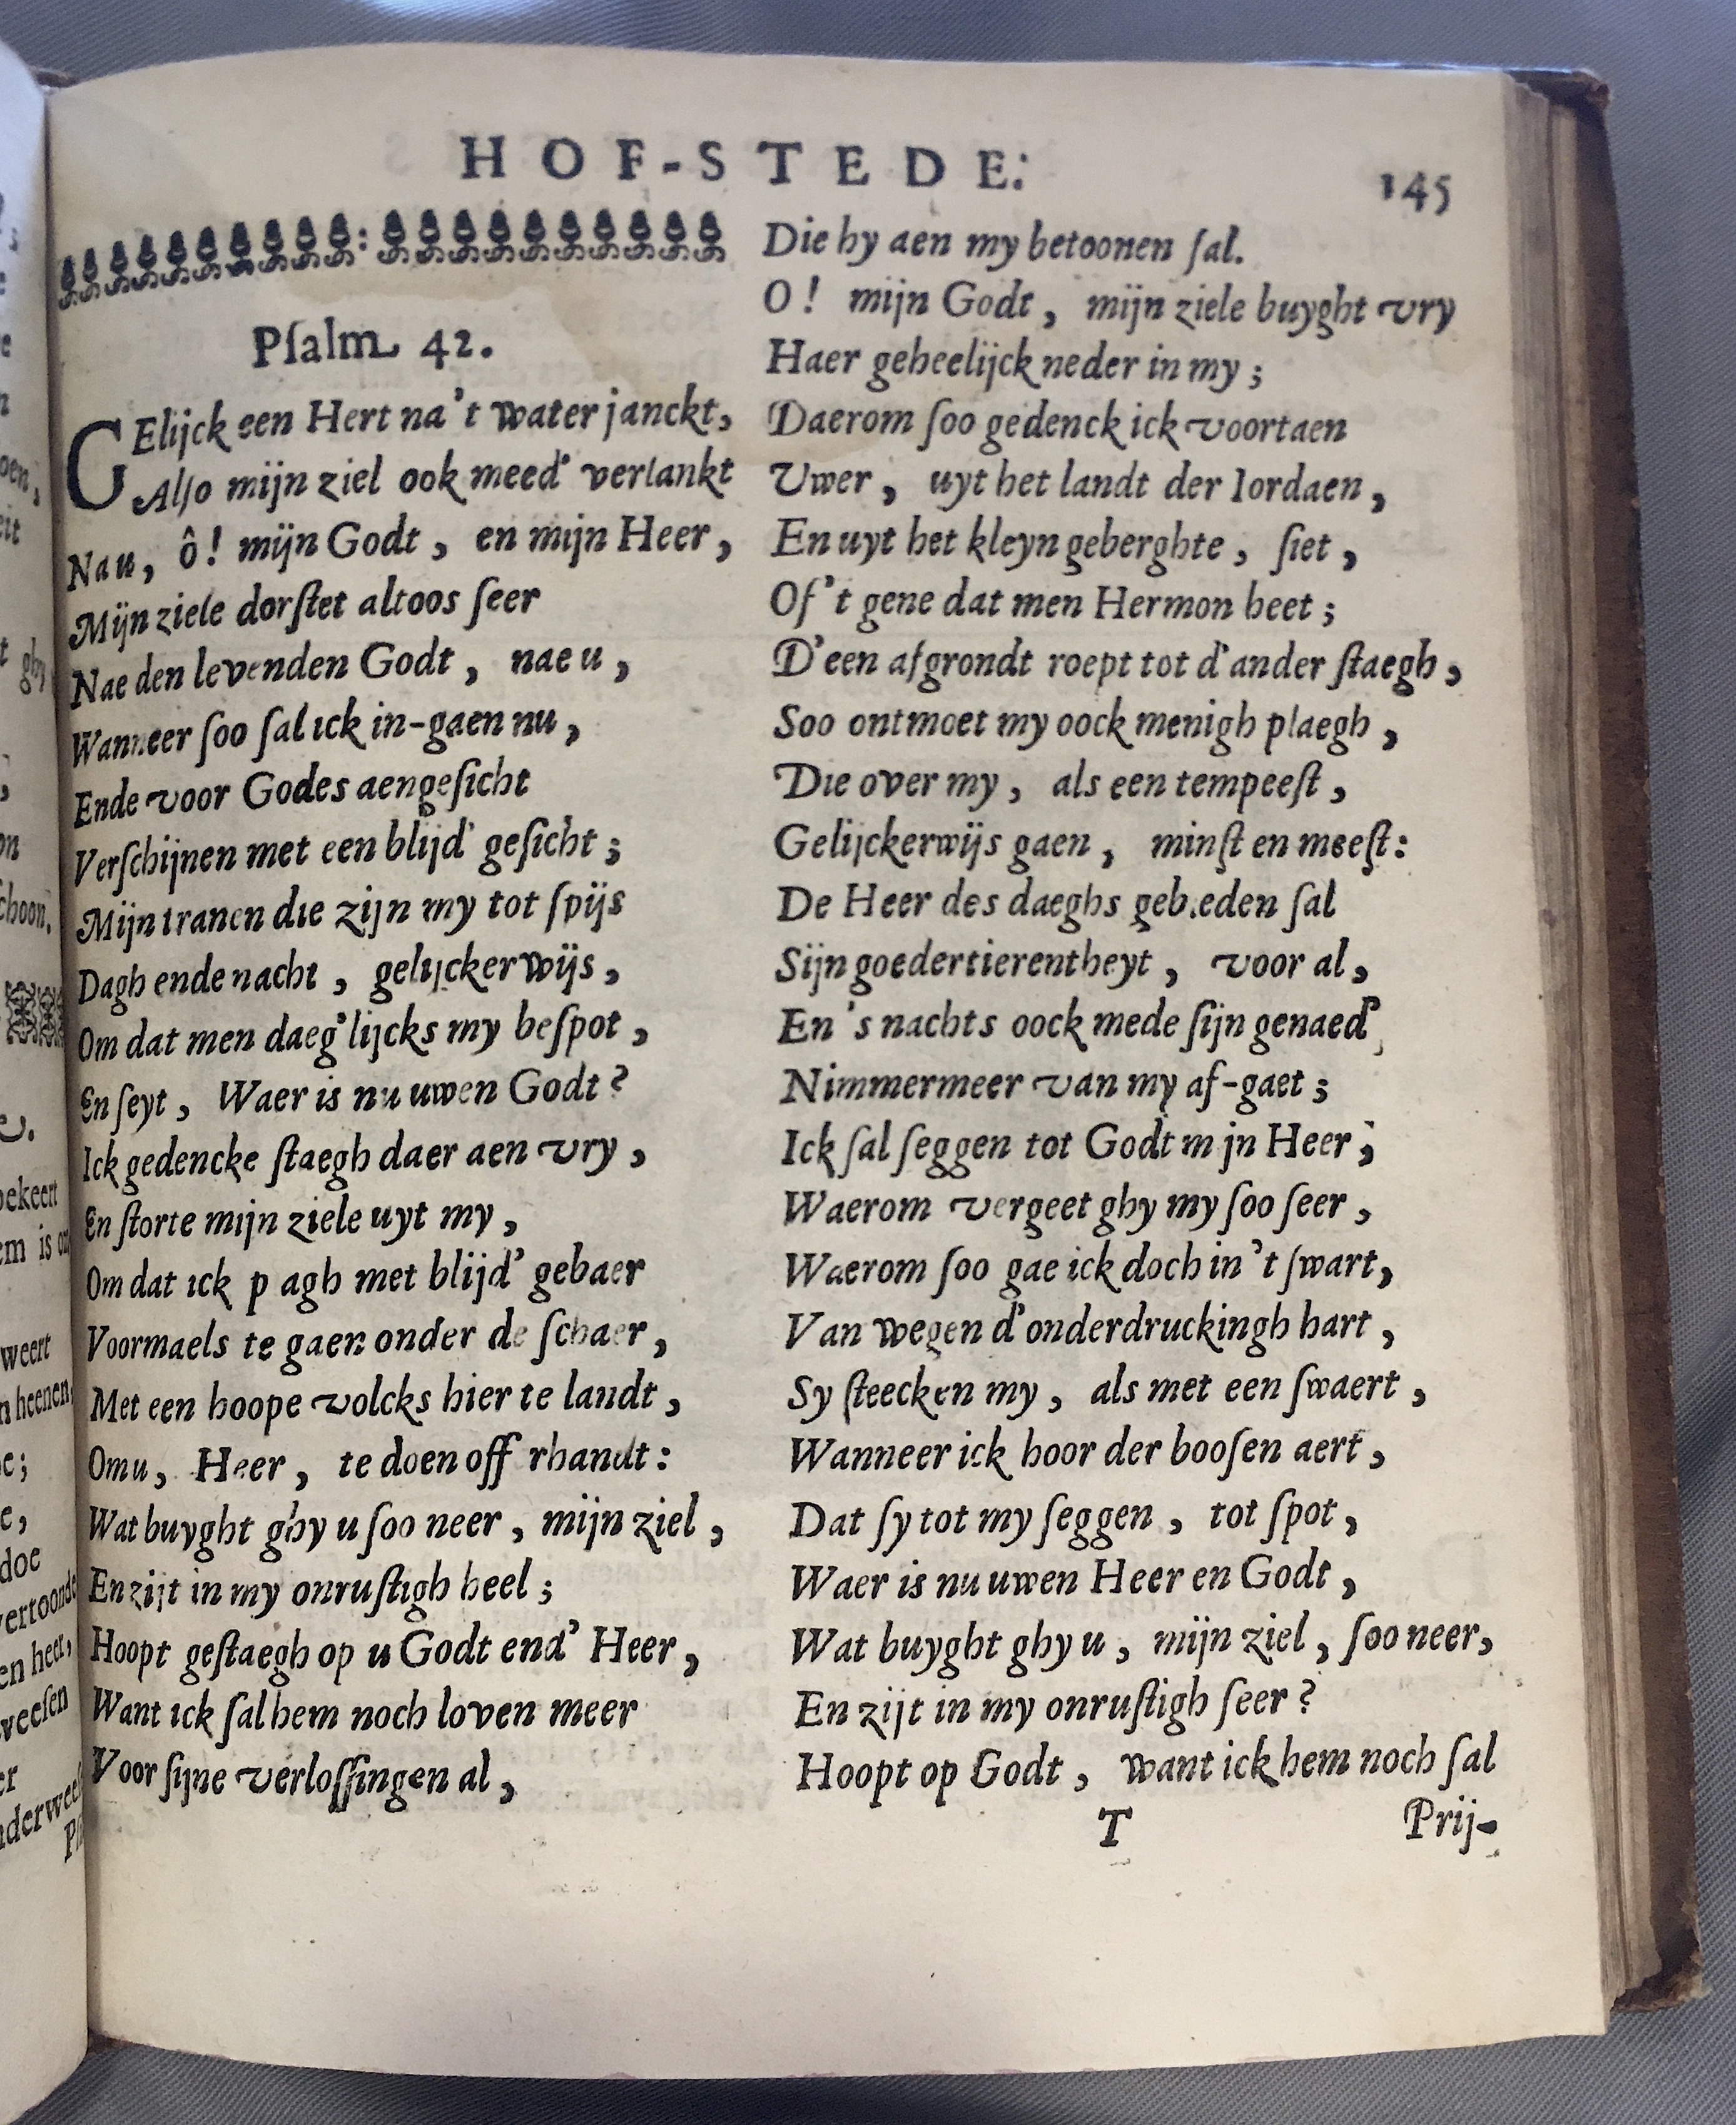 HOF-STEDE.
145
Pſalm 42.
GElijck een Hert na't water janckt,
Alſo mijn ziel ook meed' verlankt
Na u, ô! mijn Godt, en mijn Heer,
Mijn ziele dorſtet altoos ſeer
Nae den levenden Godt, nae u,
Wanneer ſoo ſal ick in-gaen nu,
Ende voor Godes aengeſicht
Verſchijnen met een blijd' geſicht;
Mijn tranen die zijn my tot ſpijs
Dagh ende nacht, gelijckerwijs,
Om dat men daeg'lijcks my beſpot,
En ſeyt, Waer is nu uwen Godt?
Ick gedencke ſtaegh daer aen vry,
En ſtorte mijn ziele uyt my,
Om dat ick p agh met blijd' gebaer
Voormaels te gaen onder de ſchaer,
Met een hoope volcks hier te landt,
Om u, Heer, te doen off rhandt:
Wat buyght ghy u ſoo neer, mijn ziel,
En zijt in my onruſtigh heel;
Hoopt geſtaegh op u Godt end' Heer,
Want ick ſal hem noch loven meer
Voor ſijne verloſſingen al,
Die hy aen my betoonen ſal.
O! mijn Godt, mijn ziele buyght vry
Haer geheelijck neder in my;
Daerom ſoo gedenck ick voortaen
Uwer, uyt het landt der Iordaen,
En uyt het kleyn geberghte, ſiet,
Of 't gene dat men Hermon heet;
D'een afgrondt roept tot d'ander ſtaegh,
Soo ontmoet my oock menigh plaegh,
Die over my, als een tempeeſt,
Gelijckerwijs gaen, minſt en meeſt:
De Heer des daeghs geb.eden ſal
Sijn goedertierentheyt, voor al,
En 's nachts oock mede ſijn genaed',
Nimmermeer van my af-gaet;
Ick ſal ſeggen tot Godt m jn Heer;
Waerom vergeet ghy my ſoo ſeer,
Waerom ſoo gae ick doch in 't ſwart,
Van wegen d'onderdruckingh hart,
Sy ſteecken my, als met een ſwaert,
Wanneer ick hoor der booſen aert,
Dat ſy tot my ſeggen, tot ſpot,
Waer is nu uwen Heer en Godt,
Wat buyght ghy u, mijn ziel, ſoo neer,
En zijt in my onruſtigh ſeer?
Hoopt op Godt, want ick hem noch ſal
T Prij-